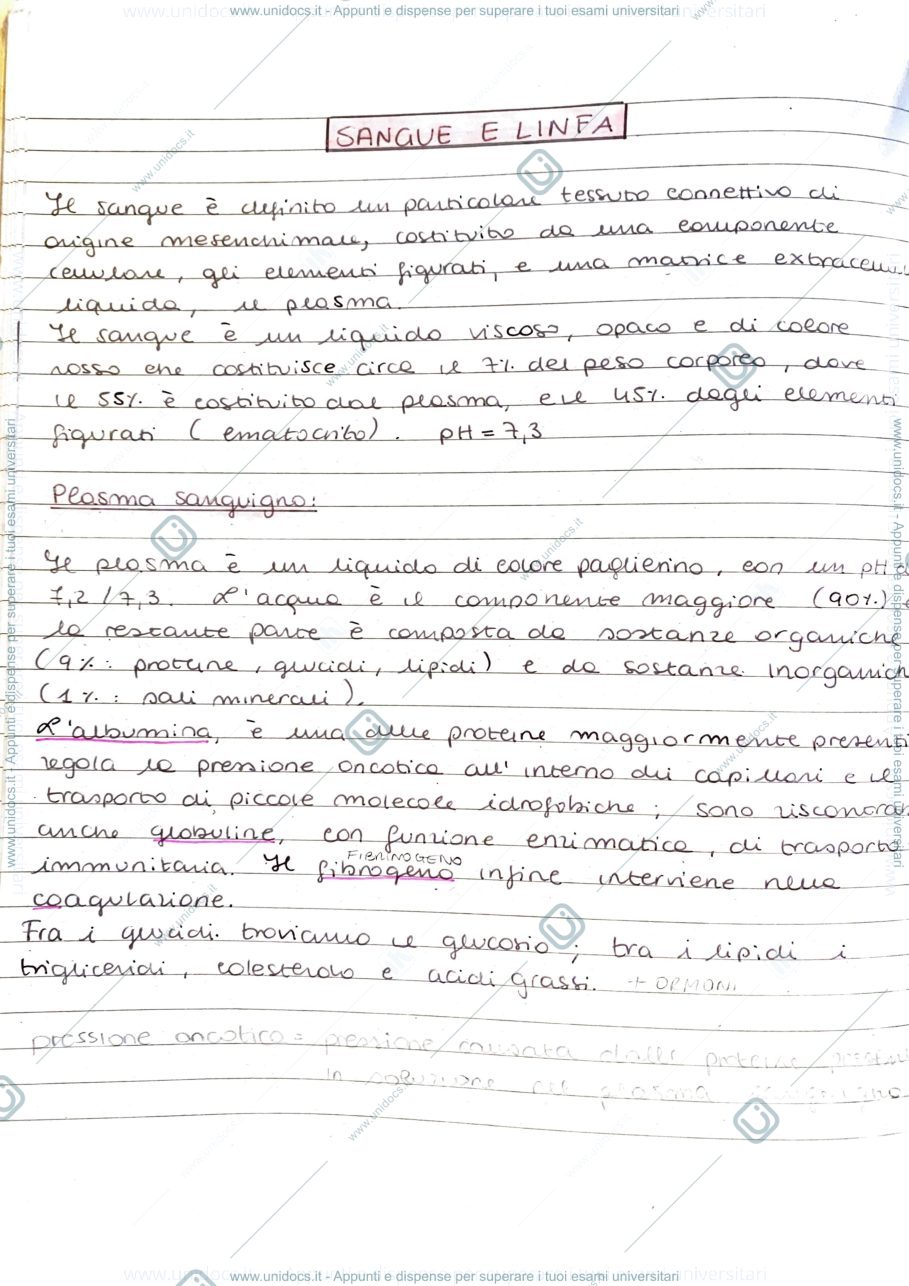 www.unidocs.it - Appunti e dispense per superare i tuoi esami universitari
SANGUE E LINFA
Il sangue è definito un particolare tessuto connettivo di
origine mesenchimale, costituito da una componente
cellulare, gli elementi figurati, e una matrice extracellu
liquida, il plasma.
Il sangue è un liquido viscoso, opaco e di colore
rosso che costituisce circa il 7% del peso corporeo, dove
il 55% è costituito dal plasma, e il 45% dagli elementi
figurati (ematocrito). pH = 7,3
Plasma sanguigno:
Il plasma è un liquido di colore paglierino, con un pH d
7,2 / 7,3. L'acqua è il componente maggiore (90%) e
la restante parte è composta da sostanze organiche
(9%: proteine, glucidi, lipidi) e da sostanze inorganich
(1%: sali minerali).
L'albumina, è una delle proteine maggiormente presenti
regola la pressione oncotica all'interno dei capillari e il
trasporto di piccole molecole idrofobiche; sono riscontra
anche globuline, con funzione enzimatica, di trasporto
immunitaria. Il fibrogeno infine interviene nella
FIBRINOGENO
coagulazione.
Fra i glucidi troviamo il glucosio; tra i lipidi i
trigliceridi, colesterolo e acidi grassi. + ORMONI
pressione oncotica = pressione causata dalle proteine presenti
in soluzione nel plasma sanguigno.
www.unidocs.it - Appunti e dispense per superare i tuoi esami universitari